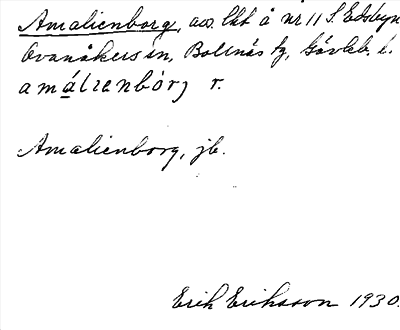 Amalienborg, avs. lht å nr 11 S. Edsbyn
Ovanåkers sn, Bollnäs tg, Gävleb. l.
amálienbórj r.
Amalienborg, jb.
Erik Eriksson 1930.